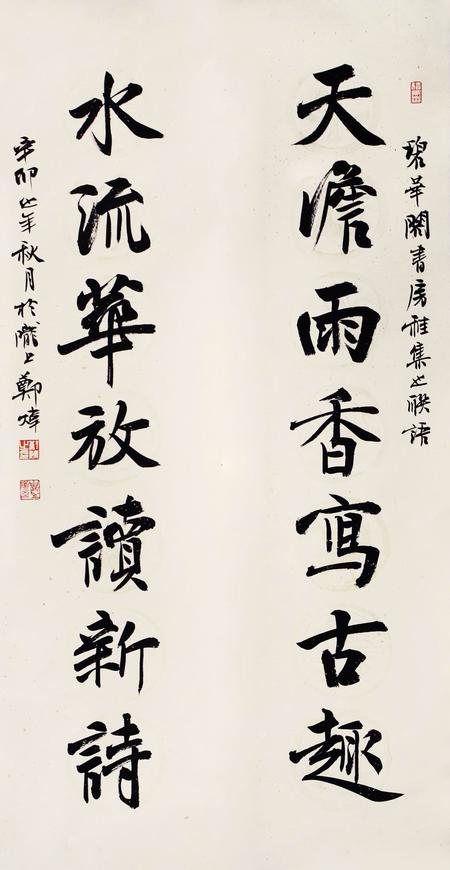 碧華閣書房雅集之聯語
天澹雨香寫古趣
水流華放讀新詩
辛卯之年秋月於隴上鄭煒